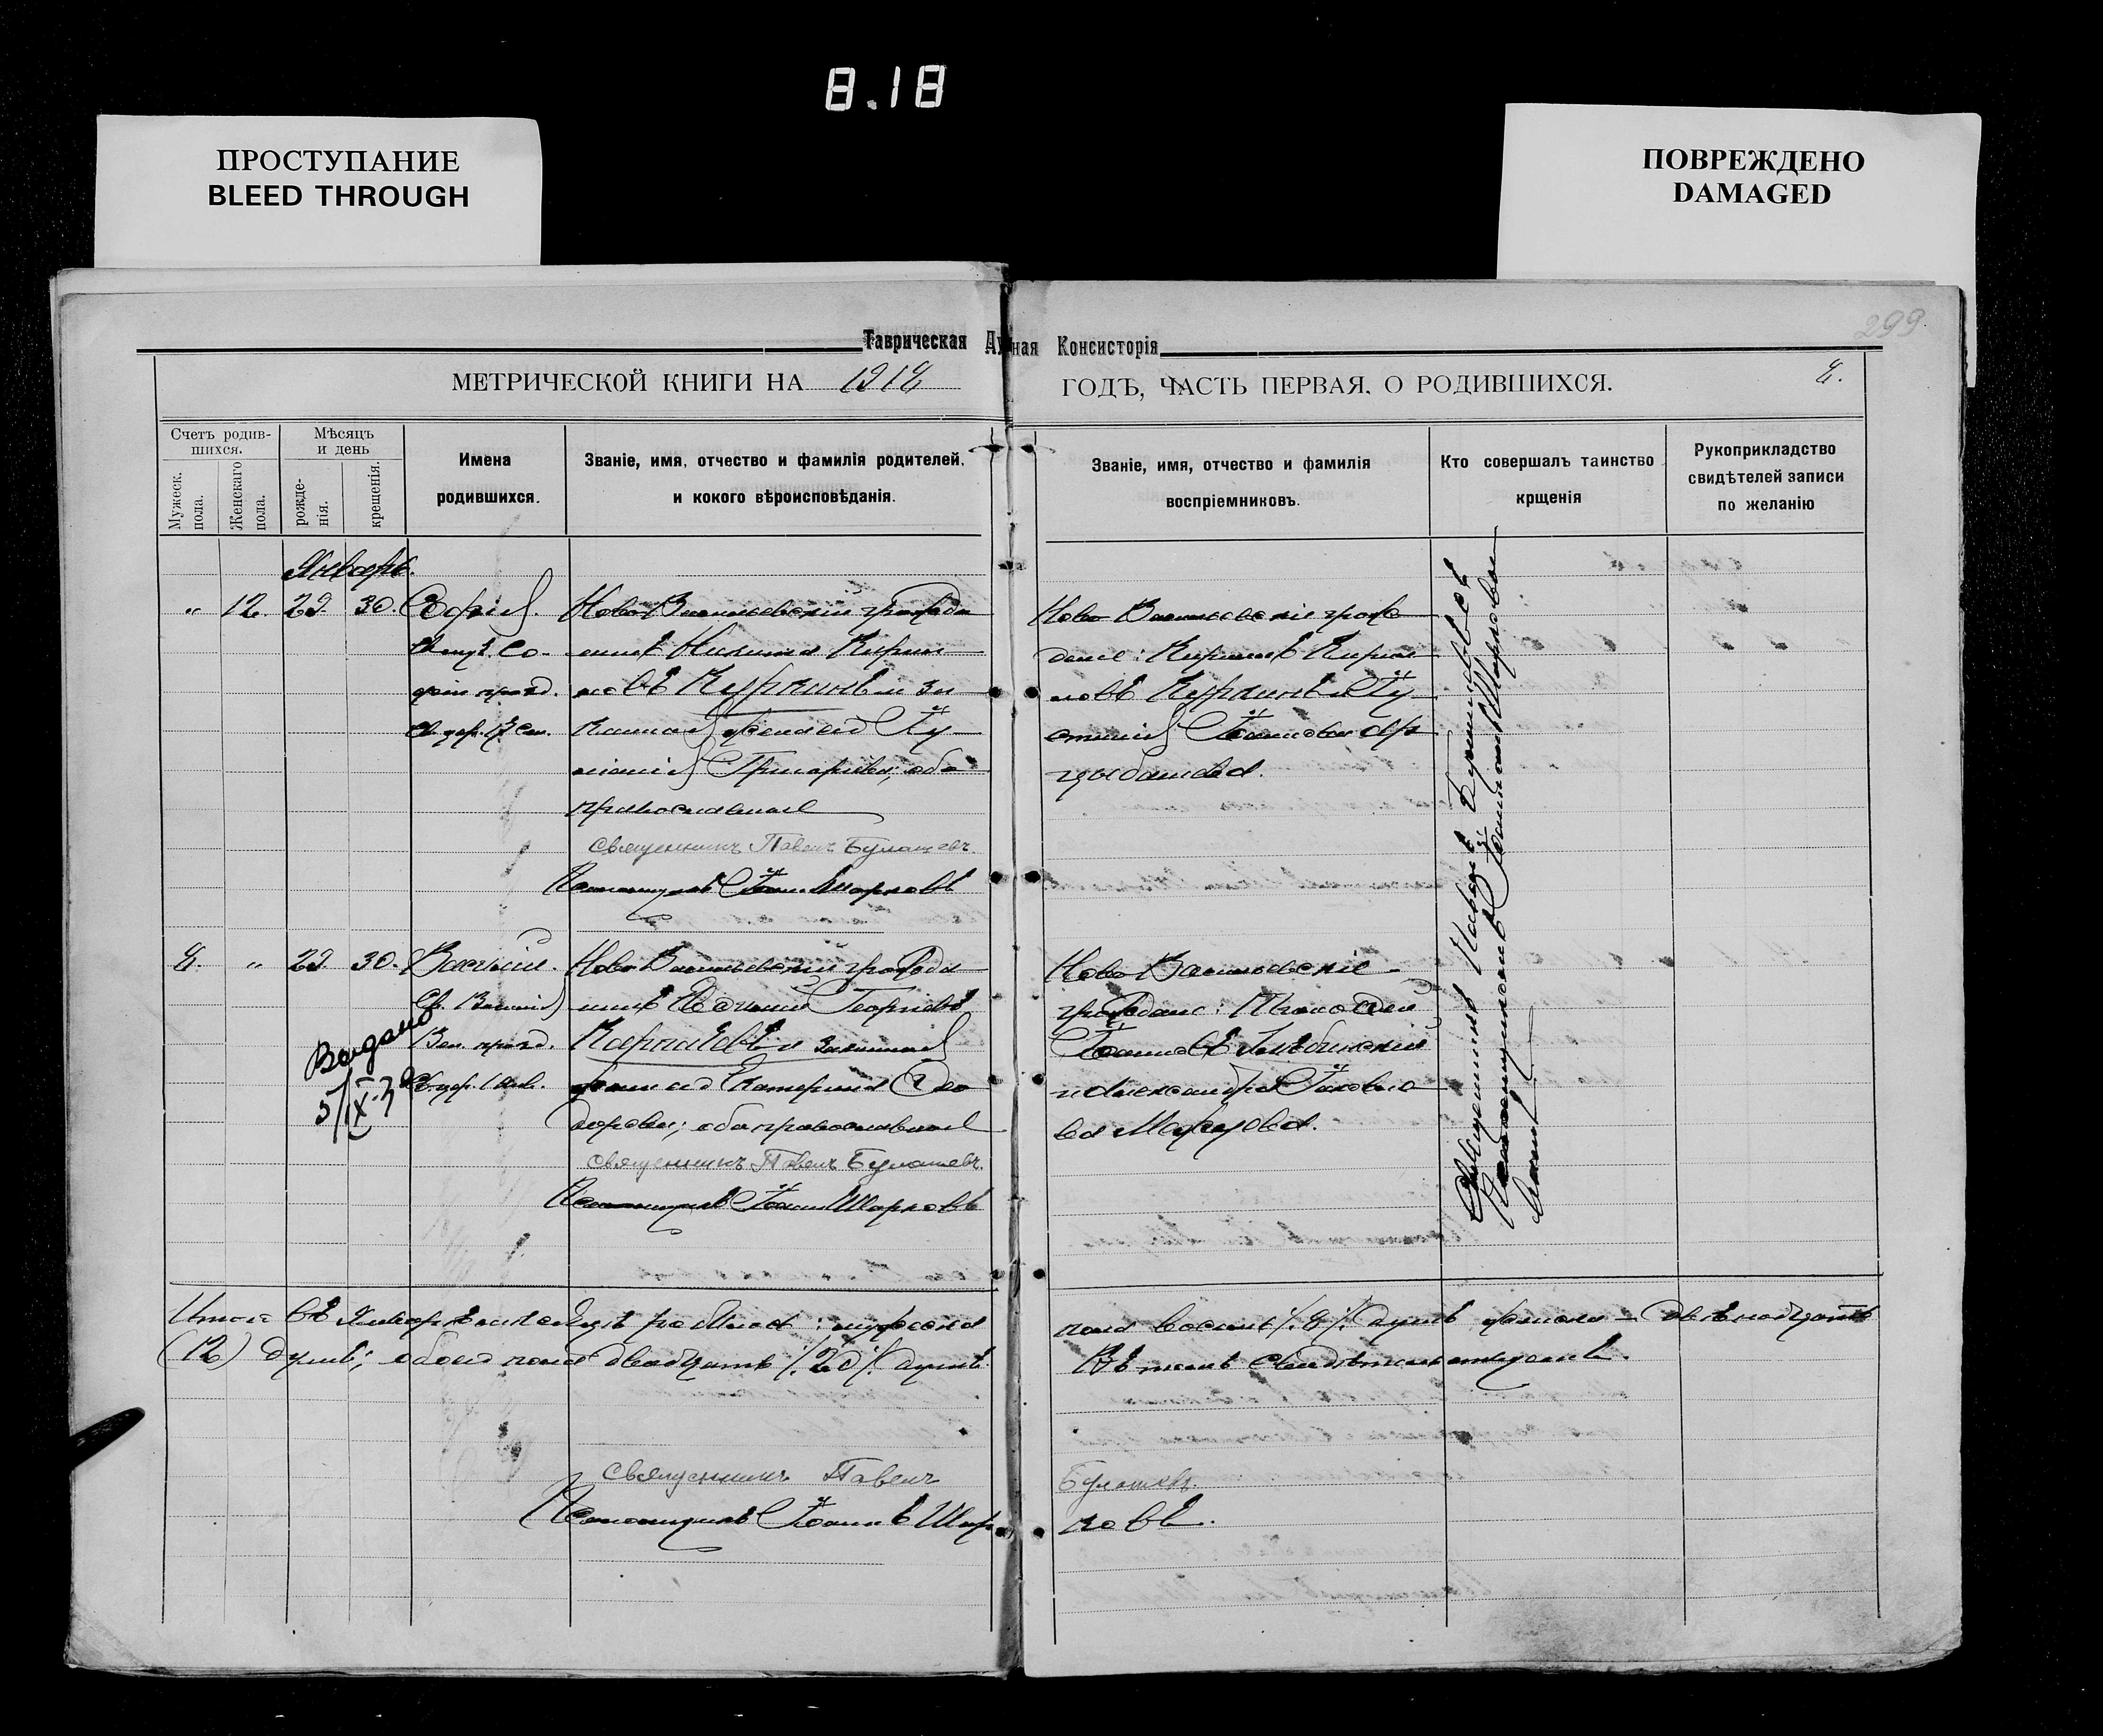 8.18
ПРОСТУПАНИЕ
BLEED THROUGH
ПОВРЕЖДЕНО
DAMAGED
299
Таврическая Ду ная Консисторія
МЕТРИЧЕСКОЙ КНИГИ НА 1918 ГОДЪ, ЧАСТЬ ПЕРВАЯ, О РОДИВШИХСЯ.
8.
Счетъ родив-
шихся.
Мужеск.
пола.
Женскаго
пола.
Мѣсяцъ
и день
рожде-
нія.
крещенія.
Имена
родившихся.
Званіе, имя, отчество и фамилія родителей,
и кокого вѣроисповѣданія.
Званіе, имя, отчество и фамилія
воспріемниковъ.
Кто совершалъ таинство
крщенія
Рукоприкладство
свидѣтелей записи
по желанію
Январь.
" 12. 29. 30. Софія.
Ново Васильевскій гражда
нинъ Никита Кирил
ловъ Куркчинъ и за
конная жена его Іу
ліанія Григорьева; оба
православные
Священникъ Павелъ Булашевъ.
Псаломщикъ Іоаннъ Шарковъ
Ново Васильевскіе граж
дане: Кириллъ Кирил
ловъ Куркчинъ и Іу
стинія Іоаннова Ар
цыбашева.
8. " 29. 30. Василій.
Ново Васильевскій гражда
нинъ Евгеній Георгіевъ
и законная
жена его Екатерина Ѳео
дорова; оба православные
Священникъ Павелъ Булашевъ.
Псаломщикъ Іоаннъ Шарковъ
Ново Васильевскіе
граждане:
Іоанновъ
и Александра Іаковле
ва
Выдано
5/IX-3
Священникъ Павелъ Булашевъ съ
Псаломщикомъ Іоанномъ Шарковым
Итого въ Январѣ мѣсяцѣ родилось: мужеска пола восемь /.8/. душъ, женска – двѣнадцать
(12) душъ; обоего пола двадцать /.20/. душъ. Въ чемъ свидѣтельствуемъ.
Священникъ Павелъ Булашевъ.
Псаломщикъ Іоаннъ Шарковъ.